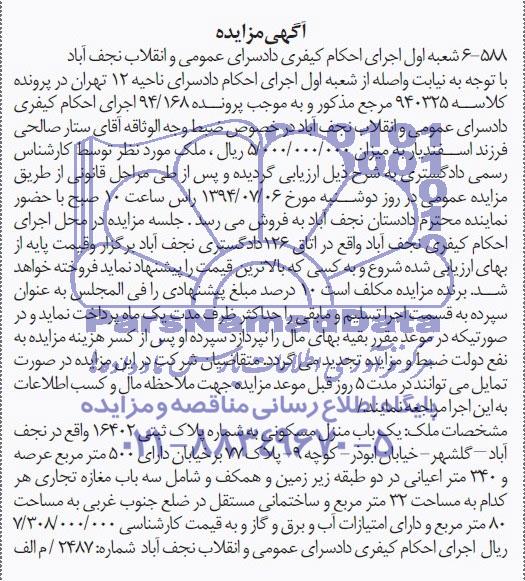 آگهی مزایده
۶-۵۸۸ شعبه اول اجرای احکام کیفری دادسرای عمومی و انقلاب نجف آباد
با توجه به نیابت واصله از شعبه اول اجرای احکام دادسرای ناحیه ۱۲ تهران در پرونده
کلاسه ۹۴۰۳۲۵ مرجع مذکور و به موجب پرونده ۹۴/۱۶۸ اجرای احکام کیفری
دادسرای عمومی و انقلاب نجف آباد در خصوص ضبط وجه الوثاقه آقای ستار صالحی
فرزند اسفندیار به میزان ۵/۰۰۰/۰۰۰/۰۰۰ ریال، ملک مورد نظر توسط کارشناس
رسمی دادگستری به شرح ذیل ارزیابی گردیده و پس از طی مراحل قانونی از طریق
مزایده عمومی در روز دوشنبه مورخ ۱۳۹۴/۰۷/۰۶ راس ساعت ۱۰ صبح با حضور
نماینده محترم دادستان نجف آباد به فروش می رسد. جلسه مزایده در محل اجرای
احکام کیفری نجف آباد واقع در اتاق ۱۲۶ دادگستری نجف آباد برگزار و قیمت پایه از
بهای ارزیابی شده شروع و به کسی که بالاترین قیمت را پیشنهاد نماید فروخته خواهد
شد. برنده مزایده مکلف است ۱۰ درصد مبلغ پیشنهادی را فی المجلس به عنوان
سپرده به قسمت اجرا تسلیم و مابقی را حداکثر ظرف مدت یک ماه پرداخت نماید و در
صورتیکه در موعد مقرر بقیه بهای مال را نپردازد سپرده او پس از کسر هزینه مزایده به
نفع دولت ضبط و مزایده تجدید می گردد. متقاضیان شرکت در این مزایده در صورت
تمایل می توانند در مدت ۵ روز قبل موعد مزایده جهت ملاحظه مال و کسب اطلاعات
به این اجرا مراجعه نمایند.
مشخصات ملک: یک باب منزل مسکونی به شماره پلاک ثبتی ۱۶۴۰۲ واقع در نجف
آباد – گلشهر – خیابان ابوذر – کوچه ۱۹ پلاک ۷۷ بر خیابان دارای ۵۰۰ متر مربع عرصه
و ۳۴۰ متر اعیانی در دو طبقه زیر زمین و همکف و شامل سه باب مغازه تجاری هر
کدام به مساحت ۳۲ متر مربع و ساختمانی مستقل در ضلع جنوب غربی به مساحت
۸۰ متر مربع و دارای امتیازات آب و برق و گاز و به قیمت کارشناسی ۷/۳۰۸/۰۰۰/۰۰۰
ریال اجرای احکام کیفری دادسرای عمومی و انقلاب نجف آباد شماره: ۲۴۸۷ / م الف
ParsNamadData
پایگاه اطلاع رسانی مناقصه و مزایده
۰۲۱-۸۸۳۴۹۶۷۰-۵